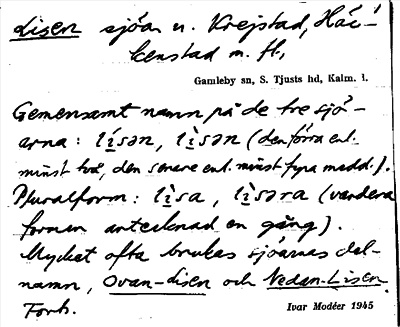 Lisen sjöa n. Krejstad, Häc-
kenstad m. fl.,
Gamleby sn, S. Tjusts hd, Kalm. l.
Gemensamt namn på de tre sjö-
arna: lísən, lìsən (den förra enl.
minst två, den senare enl. minst fyra medd.).
Pluralform: lìsa, lìsəra (vardera
formen antecknad en gång).
Mycket ofta brukas sjöarnas del-
namn, Ovan-Lisen och Nedan-Lisen.
Forts.
Ivar Modéer 1945